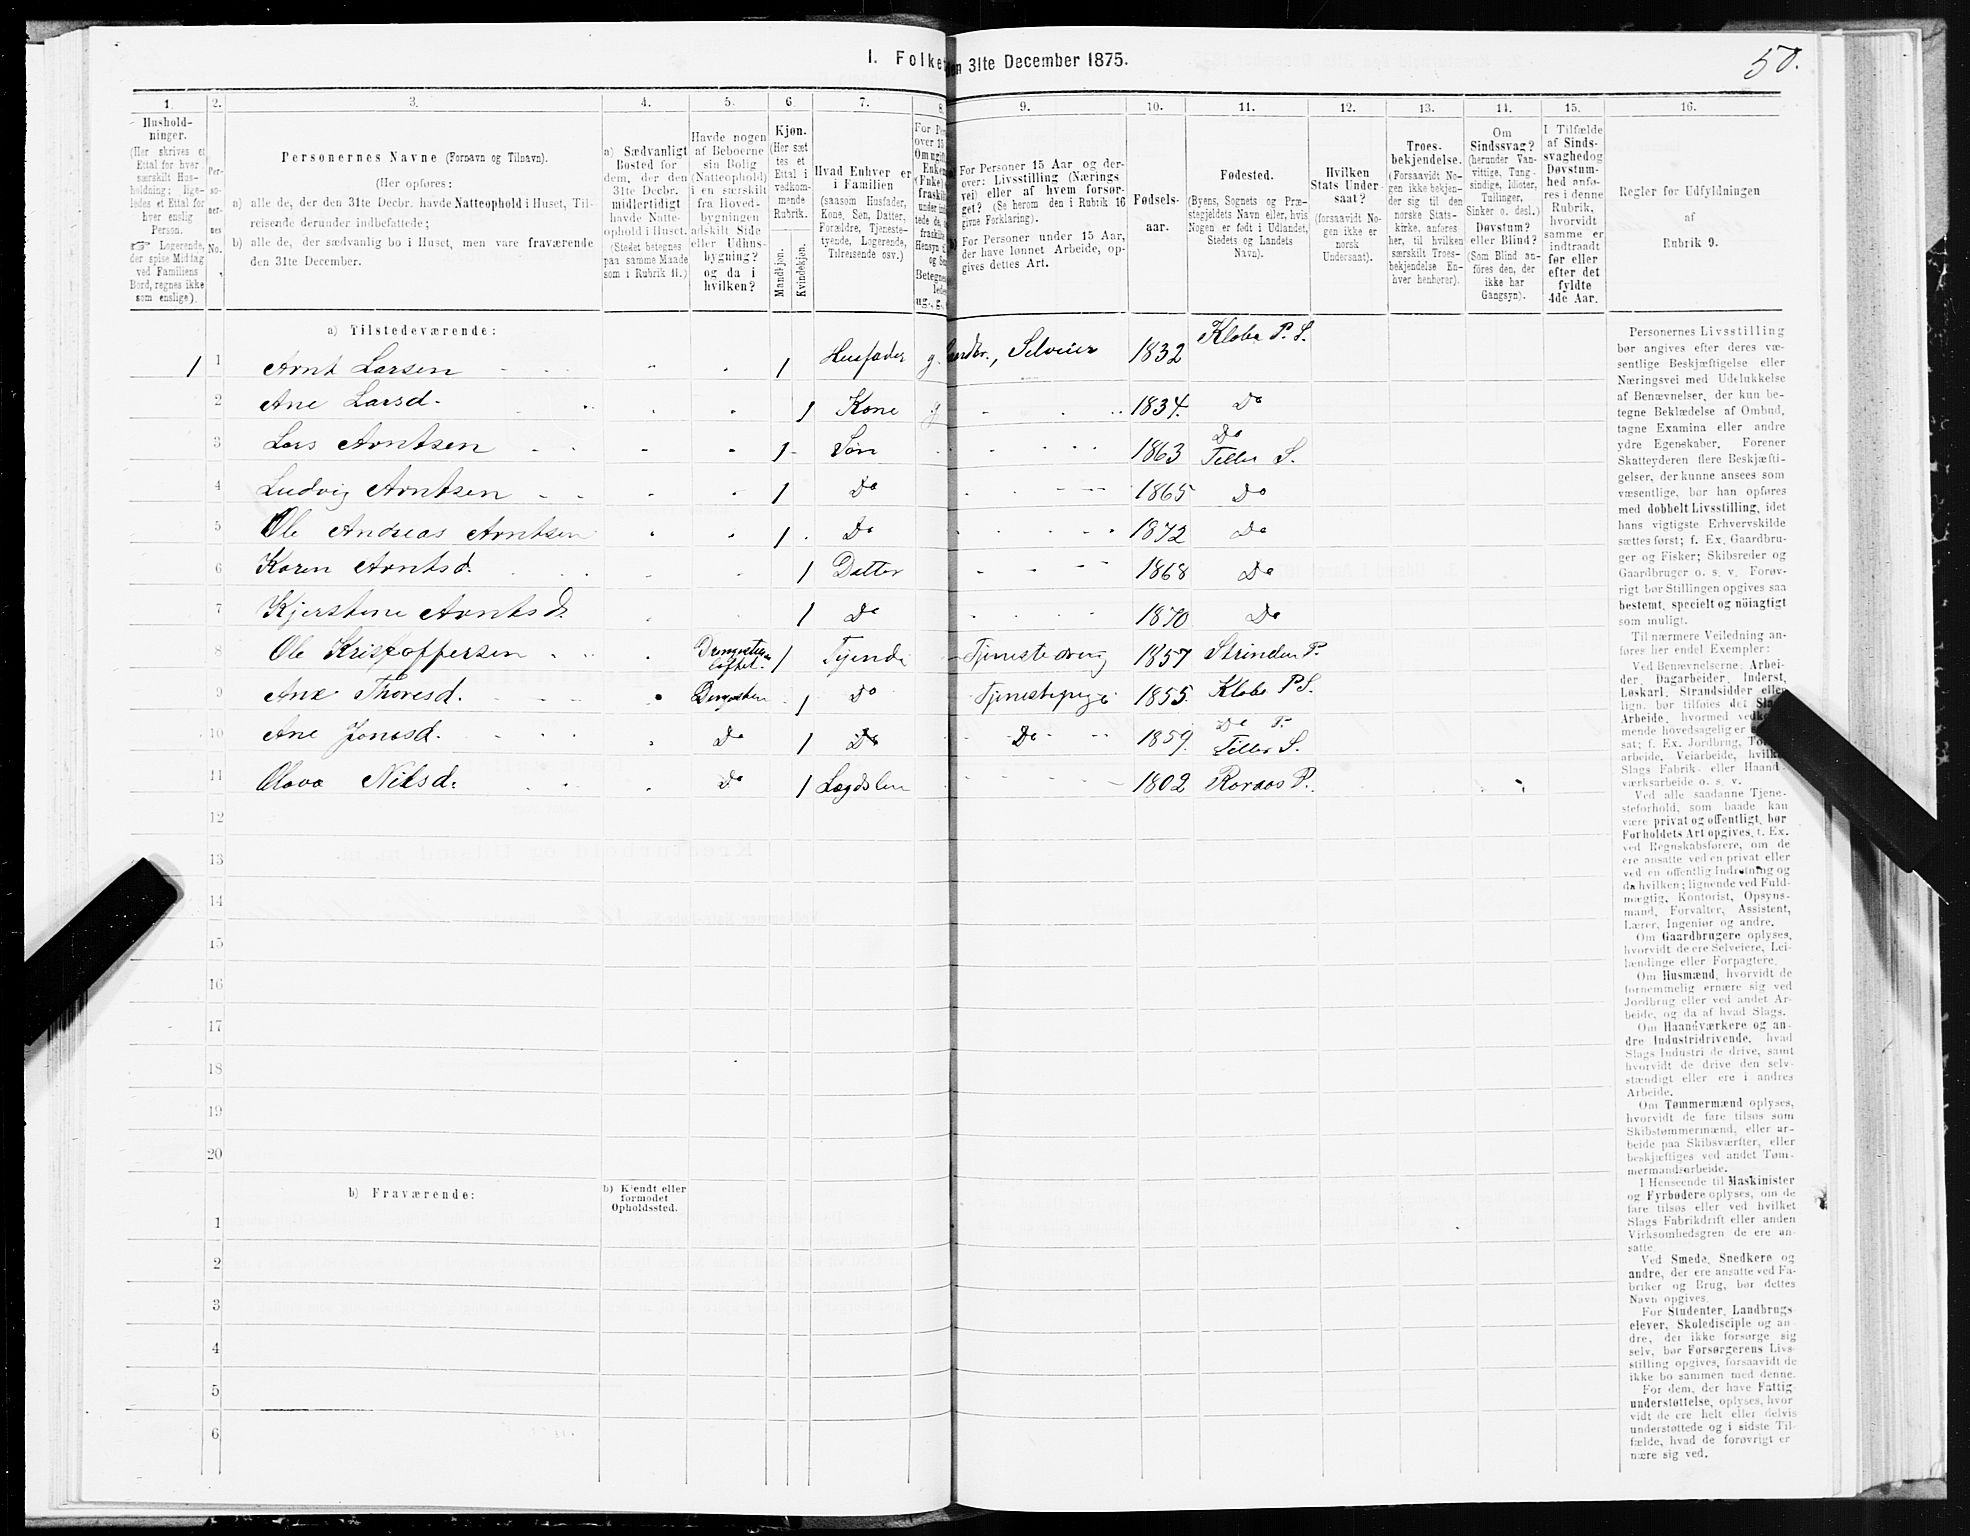 50.
I. Folke
en 31te December 1875.
1. 2. 3. 4. 5. 6. 7. 8. 9. 10. 11. 12. 13. 14. 15. 16.
Hushold-
ninger.
(Her skrives et
Ettal for hver
særskilt Hus-
holdning; lige-
ledes et Ettal for
hver enslig
Person.
☞ Logerende,
der spise Middag
ved Familiens
Bord, regnes ikke
som enslige).
Per-
so-
ner-
nes
No.
Personernes Navne (Fornavn og Tilnavn).
(Her opføres:
a) alle de, der den 31te Decbr. havde Natteophold i Huset, Til-
reisende derunder indbefattede;
b) alle de, der sædvanlig bo i Huset, men vare fraværende
den 31te December.
a) Sædvanligt
Bosted for
dem, der den
31te Decbr.
midlertidigt
havde Natte-
ophold i Huset.
(Stedet betegnes
paa samme Maade
som i Rubrik 11.)
Havde nogen
af Beboerne
sin Bolig
(Natteophold)
i en særskilt
fra Hoved-
bygningen
adskilt Side
eller Udhus-
bygning?
og da i
hvilken?
Kjøn.
(Her sæt
tes et
Ettal i
vedkom-
mende
Rubrik.
Mandkjøn.
Kvindekjøn.
Hvad Enhver er
i Familien
(saasom Husfader,
Kone, Søn, Datter,
Forældre, Tjeneste-
tyende, Logerende,
Tilreisende osv.)
For Per
over 15
Om ugift
Enkem
(Enke)
fraskilt
under ind
tede de,
fraskilte
Hensyn
og Sen
Betegnes
led
ug., g.,
For Personer 15 Aar og der-
over: Livsstilling (Nærings
vei) eller af hvem forsør-
get? (Se herom den i Rubrik 16
givne Forklaring).
For Personer under 15 Aar,
der have lønnet Arbeide, op-
gives dettes Art.
Fødsels-
aar.
Fødested.
(Byens, Sognets og Præ-
stegjeldets Navn eller, hvis
Nogen er født i Udlandet,
Stedets og Landets
Navn).
Hvilken
Stats Under-
saat?
(forsaavidt No-
gen ikke er
norsk
Undersaat).
Troes-
bekjendelse.
(Forsaavidt No-
gen ikke bekjen-
der sig til den
norske Stats-
kirke, anføres
her, til hvilken
særskilt Troes-
bekjendelse En-
hver henhører).
Om
Sindssvag?
(herunder Van-
vittige, Tung-
sindige, Idioter,
Tullinger,
Sinker o. desl.)
Døvstum?
eller Blind?
(Som Blind an-
føres den, der
ikke har
Gangsyn).
I Tilfælde
af Sinds-
svaghed og
Døvstum-
hed anfø-
res i denne
Rubrik,
hvorvidt
samme er
indtraadt
før eller
efter det
fyldte
4de Aar.
Regler for Udfyldningen
af
Rubrik 9.
a) Tilstedeværende:
1 1 Arnt Larsen 1 Husfader g Selveier 1832 Klæbo P. S.
2 Ane Larsd. 1 Kone g 1834. Do
3 Lars Arntsen 1 Søn 1863 Do Tiller S.
4 Ludvig Arntsen 1 Do 1865 Do
5 Ole Andreas Arntsen 1 Do 1872 Do
6 Karen Arntsd. 1 Datter 1868 Do
7 Kjerstine Arntsd. 1 Do 1870 Do
8 Ole Kristoffersen 1 Tjende Tjenestedreng 1857 Strinden P.
9 Ane Thoresd. 1 Do Tjenestepige 1855. Klæbo P S.
10 Ane Jonasd. Do 1 Do Do 1859. Do P. Tiller S.
11 Olava Nilsd. Do 1 Lægdslem 1802 Roraas P.
12
13
14
15
16
17
18
19
20
b) Fraværende:
b) Kjendt eller
formodet
Opholdssted.
1
2
3
4
5
6
Personernes Livsstilling
bør angives efter deres væ-
sentlige Beskjæftigelse eller
Næringsvei med Udelukkelse
af Benævnelser, der kun be-
tegne Beklædelse af Ombud,
tagne Examina eller andre
ydre Egenskaber. Forener
Skatteyderen flere Beskjæfti-
gelser, der kunne ansees som
væsentlige, bør han opføres
med dobbelt Livsstilling, idet
hans vigtigste Erhvervskilde
sættes først; f. Ex. Gaardbru-
ger og Fisker; Skibsreder og
Gaardbruger o. s. v. Forøv-
rigt bør Stillingen opgives saa
bestemt, specielt og nøiagtigt
som muligt.
Til nærmere Veiledning an-
føres her endel Exempler:
Ved Benævnelserne: Arbei-
der, Dagarbeider, Inderst,
Løskarl, Strandsidder eller
lign. bør tilføies det Slags
Arbeide, hvormed
mende hovedsagelig er
sat; f. Ex. Jordbrug,
arbeide, Veiarbeide,
Slags Fabrik- eller Haand-
værksarbeide o. s. v.
Ved alle saadanne Tjene-
steforhold, som baade kan
være privat og offentligt, bør
Forholdets Art opgives, t. Ex.
ved Regnskabsførere, om de
ere ansatte ved en privat eller
ved en offentlig Indretning og
da hvilken; lignende ved Fuld-
mægtig, Kontorist, Opsyns-
mand, Forvalter, Assistent,
Lærer, Ingeniør og andre.
Om Gaardbrugere oplyses,
hvorvidt de ere Selveiere, Lei-
lændinge eller Forpagtere.
Om Husmænd, hvorvidt de
fornemmelig ernære sig ved
Jordbrug eller ved andet Ar-
beide, og da af hvad Slags.
Om Haandværkere og an-
dre Industridrivende, hvad
Slags Industri de drive, samt
hvorvidt de drive den selv-
stændigt eller ere i andres
Arbeide.
Om Tømmermænd oplyses,
hvorvidt de fare tilsøs som
Skibstømmermænd, eller ar-
beide paa Skibsværfter, eller
beskjæftiges ved andet Tøm-
mermandsarbeide.
I Henseende til Maskinister
og Fyrbødere oplyses, om de
fare tilsøs eller ved hvilket
Slags Fabrikdrift eller anden
Virksomhedsgren de ere an-
satte.
Ved Smede, Snedkere og
andre, der ere ansatte ved Fa-
briker og Brug, bør dettes
Navn opgives.
For Studenter, Landbrugs-
elever, Skoledisciple og an-
dre, der ikke forsørge sig
selv, bør Forsørgerens Livs-
stilling opgives, forsaavidt de
ikke bo sammen med denne.
For dem, der have Fattig-
understøttelse, oplyses, hvor
vidt de ere helt eller delvis
understøttede og i sidste Til-
fælde, hvad de forøvrigt er
nære sig ved.